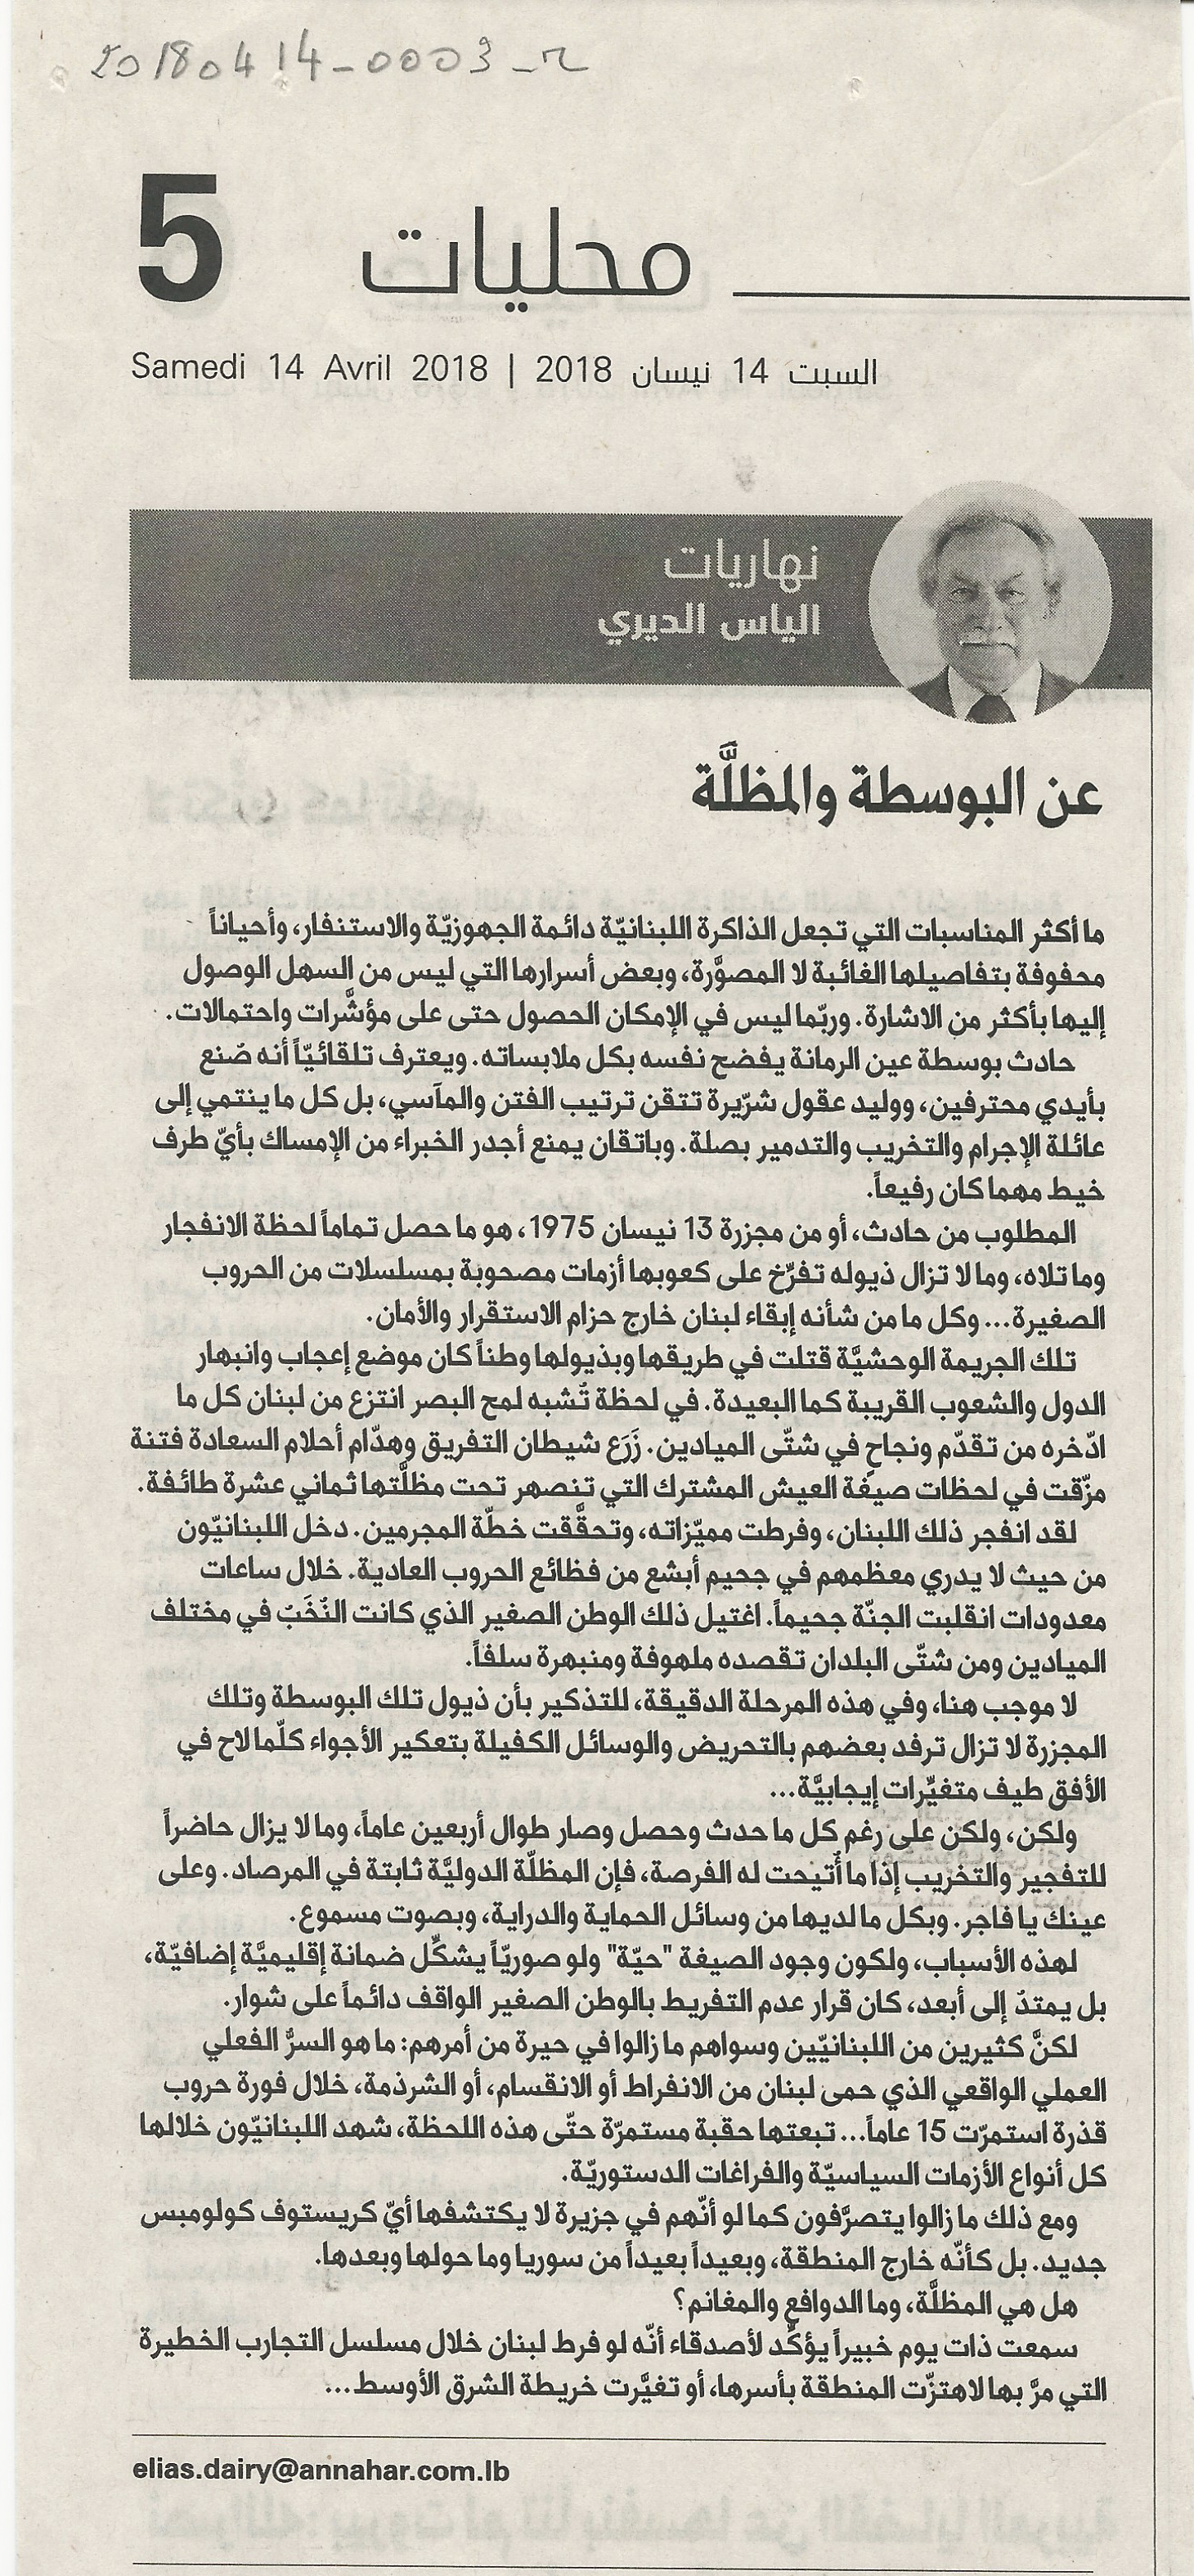 20180414-0003-r
5 محليات
Samedi 14 Avril 2018 | السبت 14 نيسان 2018
نهاريات
الياس الديري
عن البوسطة والمظلَّة
ما أكثر المناسبات التي تجعل الذاكرة اللبنانيّة دائمة الجهوزيّة والاستنفار، وأحياناً
محفوفة بتفاصيلها الغائبة لا المصوَّرة، وبعض أسرارها التي ليس من السهل الوصول
إليها بأكثر من الاشارة. وربّما ليس في الإمكان الحصول حتى على مؤشَّرات واحتمالات.
حادث بوسطة عين الرمانة يفضح نفسه بكل ملابساته. ويعترف تلقائيّاً أنه صُنع
بأيدي محترفين، ووليد عقول شرّيرة تتقن ترتيب الفتن والمآسي، بل كل ما ينتمي إلى
عائلة الإجرام والتخريب والتدمير بصلة. وباتقان يمنع أجدر الخبراء من الإمساك بأيّ طرف
خيط مهما كان رفيعاً.
المطلوب من حادث، أو من مجزرة 13 نيسان 1975، هو ما حصل تماماً لحظة الانفجار
وما تلاه، وما لا تزال ذيوله تفرِّخ على كعوبها أزمات مصحوبة بمسلسلات من الحروب
الصغيرة... وكل ما من شأنه إبقاء لبنان خارج حزام الاستقرار والأمان.
تلك الجريمة الوحشيَّة قتلت في طريقها وبذيولها وطناً كان موضع إعجاب وانبهار
الدول والشعوب القريبة كما البعيدة. في لحظة تُشبه لمح البصر انتزع من لبنان كل ما
ادّخره من تقدّم ونجاحٍ في شتّى الميادين. زَرَع شيطان التفريق وهدّام أحلام السعادة فتنة
مزّقت في لحظات صيغة العيش المشترك التي تنصهر تحت مظلَّتها ثماني عشرة طائفة.
لقد انفجر ذلك اللبنان، وفرطت مميّزاته، وتحقَّقت خطّة المجرمين. دخل اللبنانيّون
من حيث لا يدري معظمهم في جحيم أبشع من فظائع الحروب العادية. خلال ساعات
معدودات انقلبت الجنّة جحيماً. اغتيل ذلك الوطن الصغير الذي كانت النُخَبُ في مختلف
الميادين ومن شتّى البلدان تقصده ملهوفة ومنبهرة سلفاً.
لا موجب هنا، وفي هذه المرحلة الدقيقة، للتذكير بأن ذيول تلك البوسطة وتلك
المجزرة لا تزال ترفد بعضهم بالتحريض والوسائل الكفيلة بتعكير الأجواء كلّما لاح في
الأفق طيف متغيِّرات إيجابيَّة...
ولكن، ولكن على رغم كل ما حدث وحصل وصار طوال أربعين عاماً، وما لا يزال حاضراً
للتفجير والتخريب إذا ما أُتيحت له الفرصة، فإن المظلّة الدوليَّة ثابتة في المرصاد. وعلى
عينك يا فاجر. وبكل ما لديها من وسائل الحماية والدراية، وبصوت مسموع.
لهذه الأسباب، ولكون وجود الصيغة "حيّة" ولو صوريّاً يشكِّل ضمانة إقليميَّة إضافيّة،
بل يمتدّ إلى أبعد، كان قرار عدم التفريط بالوطن الصغير الواقف دائماً على شوار.
لكنَّ كثيرين من اللبنانيّين وسواهم ما زالوا في حيرة من أمرهم: ما هو السرُّ الفعلي
العملي الواقعي الذي حمى لبنان من الانفراط أو الانقسام، أو الشرذمة، خلال فورة حروب
قذرة استمرّت 15 عاماً... تبعتها حقبة مستمرّة حتّى هذه اللحظة، شهد اللبنانيّون خلالها
كل أنواع الأزمات السياسيّة والفراغات الدستوريّة.
ومع ذلك ما زالوا يتصرَّفون كما لو أنّهم في جزيرة لا يكتشفها أيّ كريستوف كولومبس
جديد. بل كأنّه خارج المنطقة، وبعيداً بعيداً من سوريا وما حولها وبعدها.
هل هي المظلَّة، وما الدوافع والمغانم؟
سمعت ذات يوم خبيراً يؤكّد لأصدقاء أنّه لو فرط لبنان خلال مسلسل التجارب الخطيرة
التي مرَّ بها لاهتزّت المنطقة بأسرها، أو تغيَّرت خريطة الشرق الأوسط...
elias.dairy@annahar.com.lb